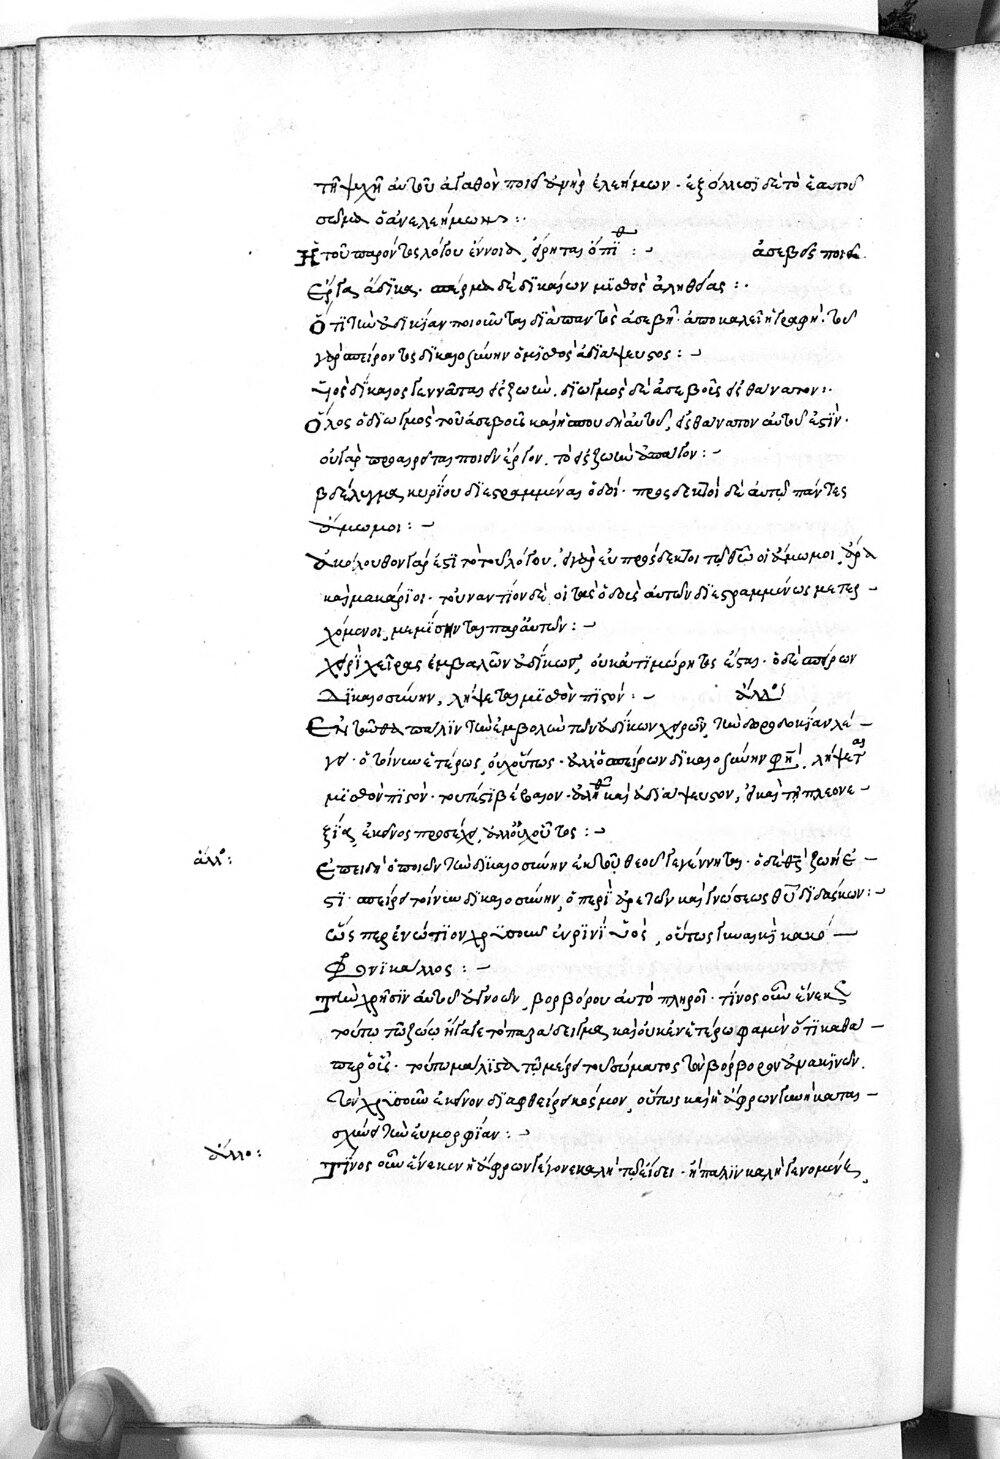 τῆ ψυχῆ αὐτοῦ ἀγαθὸν ποιεῖ ἀνὴρ ἐλεήμων · ἐξολλύει δὲ τὸ ἑαυτοῦ
σῶμα ὁ ἀνελεήμων :·
Ἡ τοῦ παρόντος λόγου ἔννοια, εἴρηται ὄπιθ : ἀσεβὴς ποιεῖ
ἔργα ἄδικα · σπέρμα δὲ δικαίων μισθὸς ἀληθείας :·
Ὅτι τὴν ἀδικίαν ποιοῦντα διαπαντὸς ἀσεβῆ · ἀποκαλεῖ ἡ γραφή · τοῦ
γὰρ σπείροντος δικαιοσύνην ὁ μισθὸς ἀδιάψευστος :
υἱὸς δίκαιος γεννᾶται εἰς ζωὴν · διωγμὸς δὲ ἀσεβοῦς εἰς θάνατον :·
Ὅλος ὁ διωγμὸς τοῦ ἀσεβοῦς καὶ ἡ σπουδὴ αὐτοῦ, εἰς θάνατον αὐτοῦ ἐστὶν ·
οὐ γὰρ προαιρεῖται ποιεῖν ἔργον, τὸ εἰς ζωὴν ἀπάγον :
βδέλυγμα κυρίου διεστραμμέναι ὁδοί · προσδεκτοὶ δὲ αὐτῷ πάντες
ἄμωμοι :
ἀκόλουθον γάρ ἐστι τὸ τοῦ λόγου · εἰ γὰρ εὐπρόσδεκτοι τῷ θεῷ οἱ ἄμωμοι, ἄρα
καὶ μακάριοι · τοὐναντίον δὲ οἱ τὰς ὁδοὺς αὐτῶν διεστραμμένως μετερ
χόμενοι, μεμίσηνται παρ' αὐτῶν :
χειρὶ χεῖρας ἐμβαλὼν ἀδίκως, οὐκ ἀτιμώρητος ἔσται · ὁ δὲ σπείρων
Δικαιοσύνην, λήψεται μισθὸν πιστόν : ἄλλο
Ἐνταῦθα πάλιν τὴν ἐμβολὴν τῶν ἀδίκων χειρῶν, τὴν δωροδοκίαν λέ
γει · ὁ τοίνυν ἑτέρως, οὐχ οὕτως · ἀλλ' ὁ σπείρων δικαιοσύνην φησὶ, λήψεται
μισθὸν πιστὸν · τουτέστι βέβαιον · ἀληθῆ καὶ ἀδιάψευστον, εἰ καὶ τῆ πλεονε
ξία, ἐκεῖνος προσέχει, ἀλλ' οὐχ οὗτος :
ἄλλο:
Ἐπειδὴ ὁ ποιῶν τὴν δικαιοσύνην ἐκ τοῦ θεοῦ γεγέννηται · ὁ δὲ θεὸς ζωή ἐ
στι · σπείρει τοίνυν δικαιοσύνην, ὁ περὶ ἀρετῶν καὶ γνώσεως θεοῦ διδάσκων :
ὥσπερ ἐνώτιον χρυσοῦν ἐν ῥινὶ ὑὸς, οὕτως γυναικὶ κακό
Φρονι κάλλος :
Τὴν χρῆσιν αὐτοῦ ἀγνοῶν, βορβόρου αὐτὸ πληροῖ · τίνος οὖν ἕνεκεν
τούτῳ τῷ ζώῳ ἤγαγε τὸ παράδειγμα, καὶ οὐκ ἐν ἑτέρῳ φαμὲν ὅτι καθά
περ ὁ ὗς · τούτῳ μάλιστα τῷ μέρει τοῦ σώματος τὸν βόρβορον ἀνακινῶν,
τὸν χρυσοῦν ἐκεῖνον διαφθείρει κόσμον, οὕτως καὶ ἡ ἄφρων γυνὴ καται
σχύνει τὴν εὐμορφίαν :
ἄλλο:
Τίνος οὖν ἕνεκεν ἡ ἄφρων γέγονε καλὴ τῷ εἴδει · ἢ πάλιν καλὴ γενομένη,